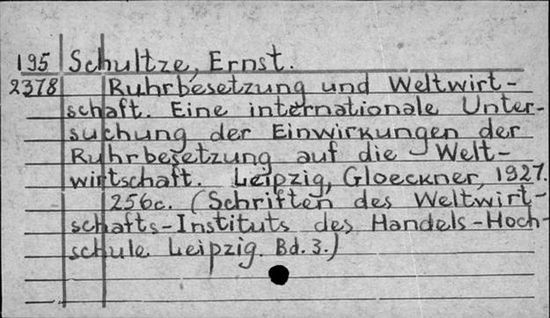 195 Schultze, Ernst.
2378 Ruhrbesetzung und Weltwirt-
schaft. Eine internationale Unter-
suchung der Einwirkungen der
Ruhrbesetzung auf die Welt-
wirtschaft. Leipzig, Gloeckner, 1927.
256c. (Schriften des Weltwirt-
schafts-Instituts des Handels-Hoch-
schule Leipzig. Bd. 3.)